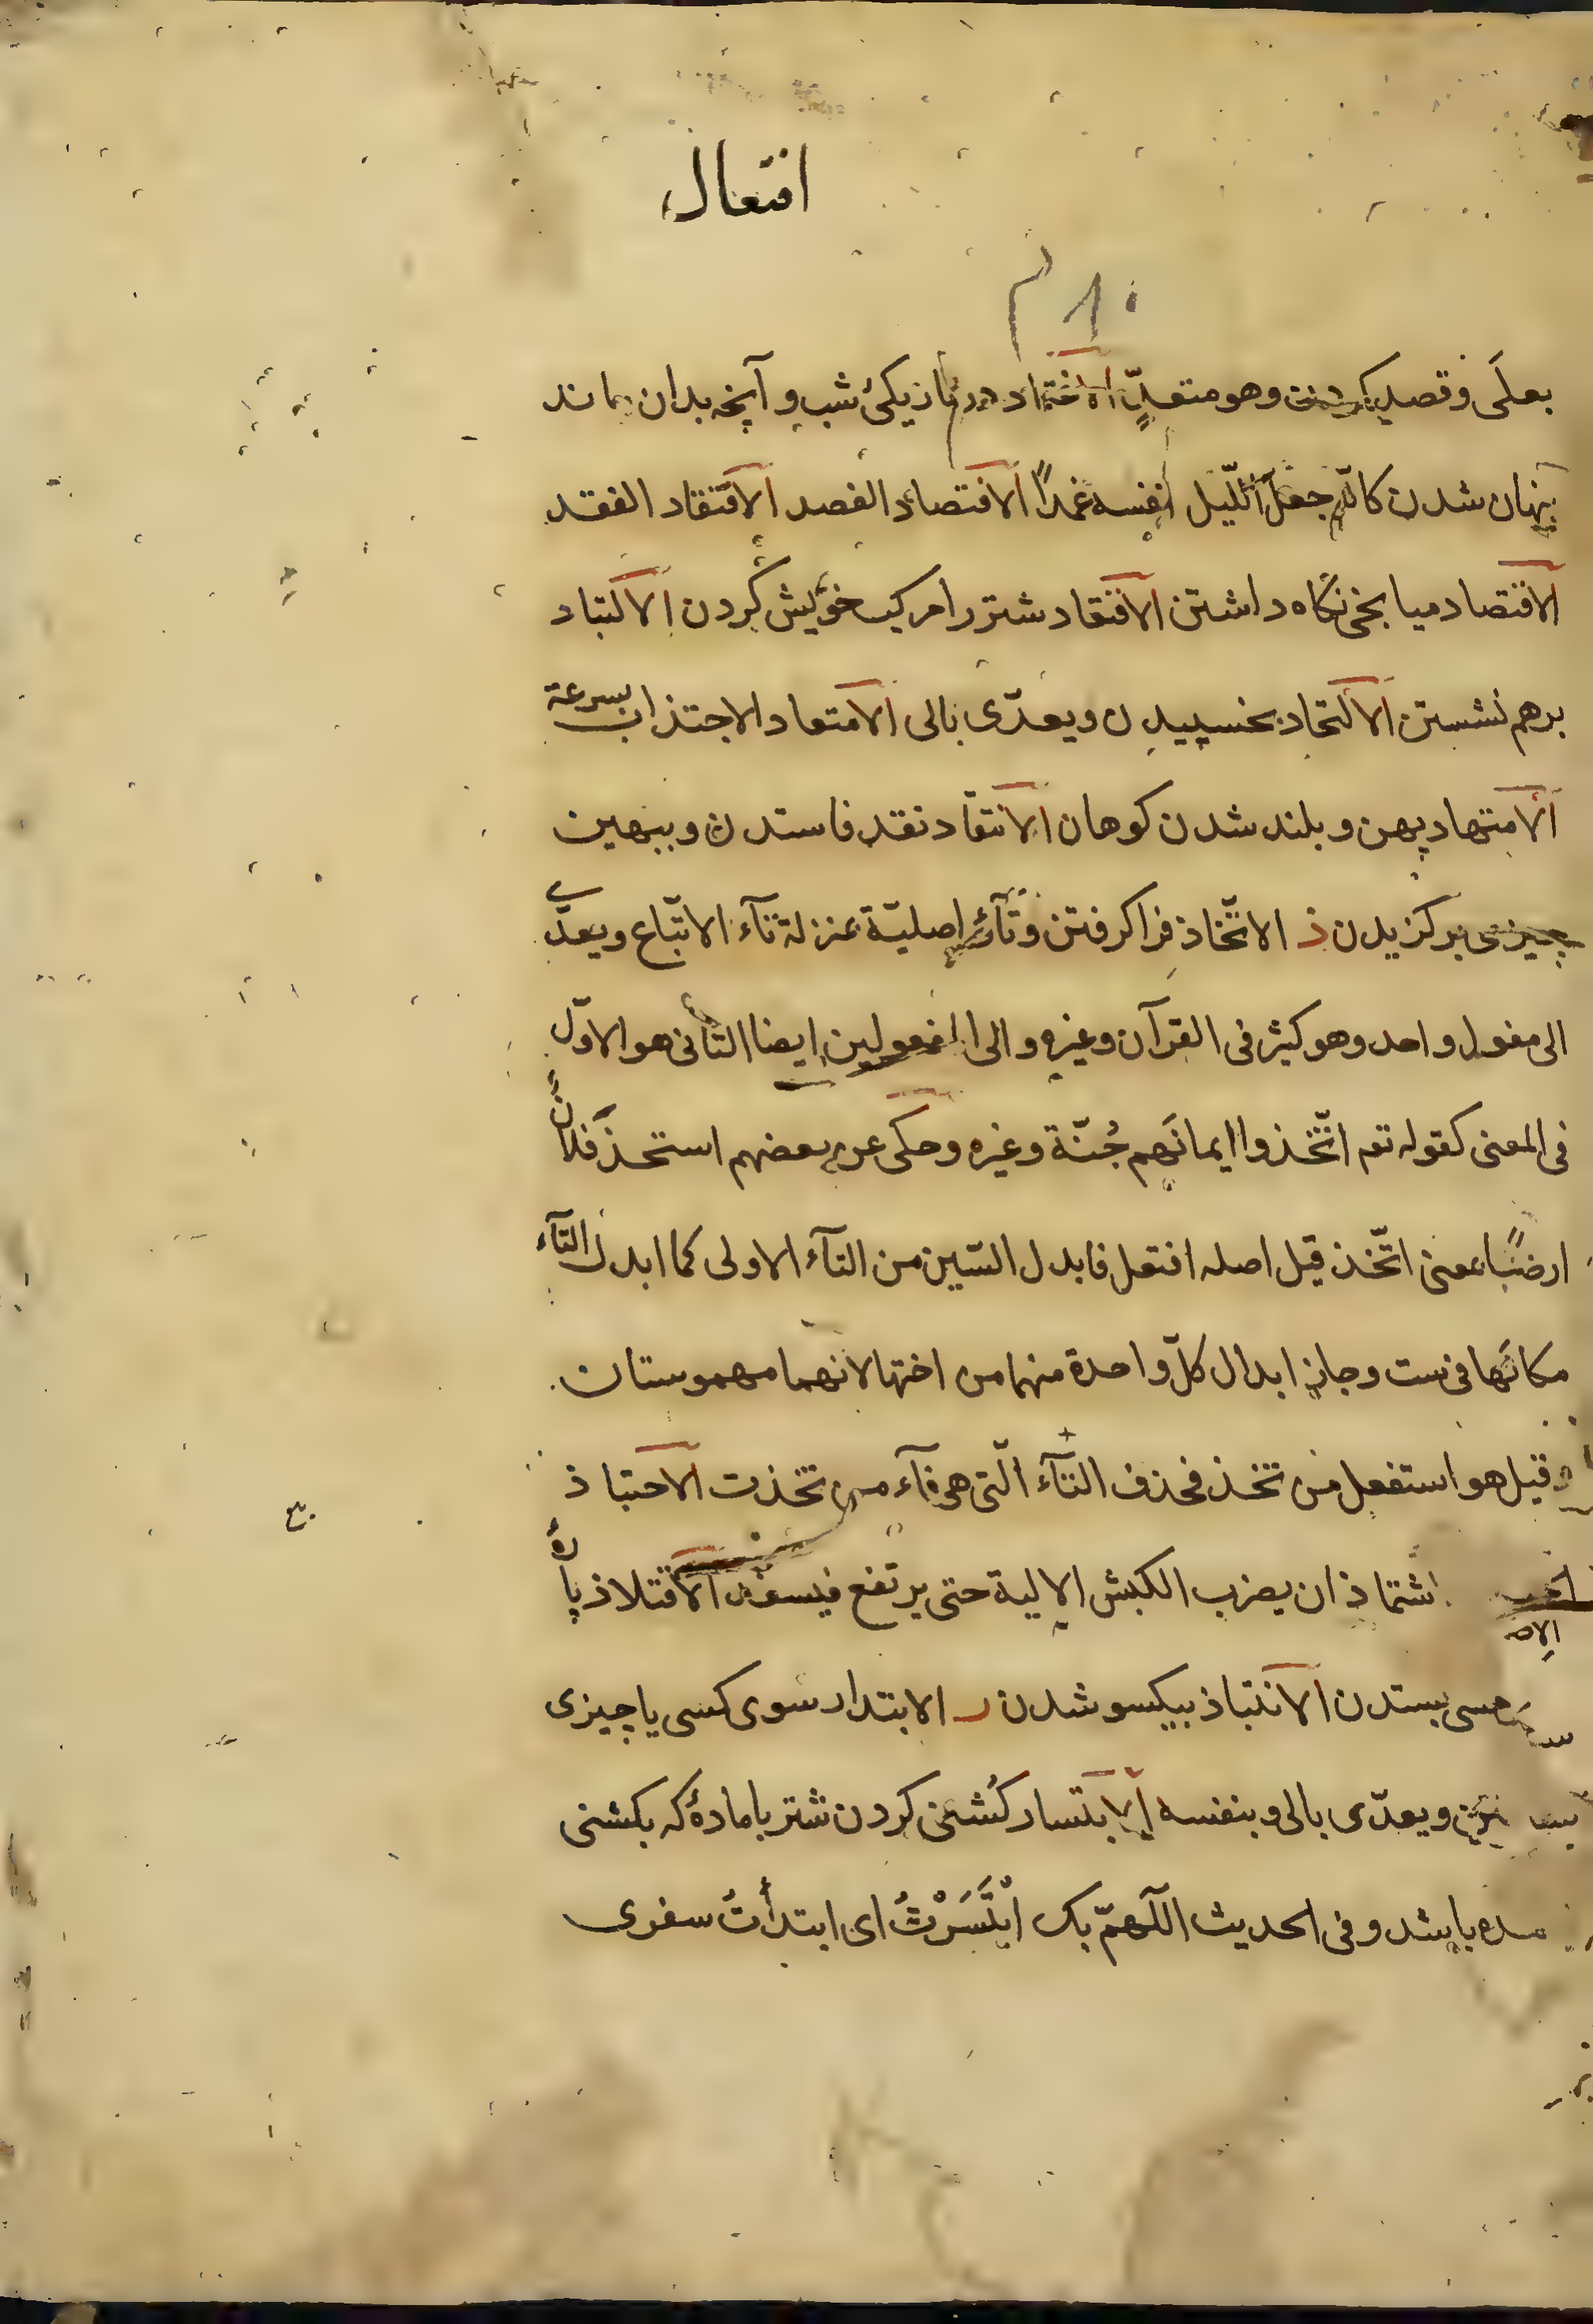 افتعال
بعلی وقصد کردن وهو متعدٍّ الاغتماد در تاریکئ شب وآنچه بدان ماند
پنهان شدن کانّه جعل اللّیل لنفسه غمدًا الافتصاد الفصد الافتقاد الفقد
الاقتصاد میانجی نکاه داشتن الاقتعاد شتر را مرکب خویش کردن الالتباد
برهم نشستن الالتحاد بخسپیدن ویعدّی بالی الامتعاد الاجتذاب بسرعة
الامتهاد پهن وبلند شدن کوهان الانتقاد نقد فاستدن وببهین
چیزی برکزیدن ذ الاتّخاذ فرا کرفتن وتآئه اصلیّة بمنزلة تآء الاتّباع ویعدّی
الی مفعول واحد وهو کثیر فی القرآن وغیره والی المفعولین ایضا الثانی هو الاوّل
فی المعنی کقوله تعم اتّخذوا ایمانَهم جُنّة وغیره وحکی عن بعضهم استخذ فلانٌ
ارضًا بمعنی اتّخذ قیل اصله افتعل فابدل السّین من التآء الاولی کما ابدل التآء
مکانَها فی ست وجاز ابدال کلّ واحدة منهما من اختها لانهما مهموستان
وقیل هو استفعل من تخذ فحذف التآء الّتی هی فآء من تخذت الاحتباذ
اشتماذ ان یضرب الکبش الالیة حتی یرتفع فیسفد الافتلاذ پارهٔ
بستدن الانتباذ بیکسو شدن ر الابتدار سوی کسی یا چیزی
ویعدّی بالی وبنفسه الابتسار کُشنی کردن شتر با مادهٔ که بکشنی
باشد وفی الحدیث اللّهمّ بک ابْتَسَرْتُ ای ابتدأتُ سفری